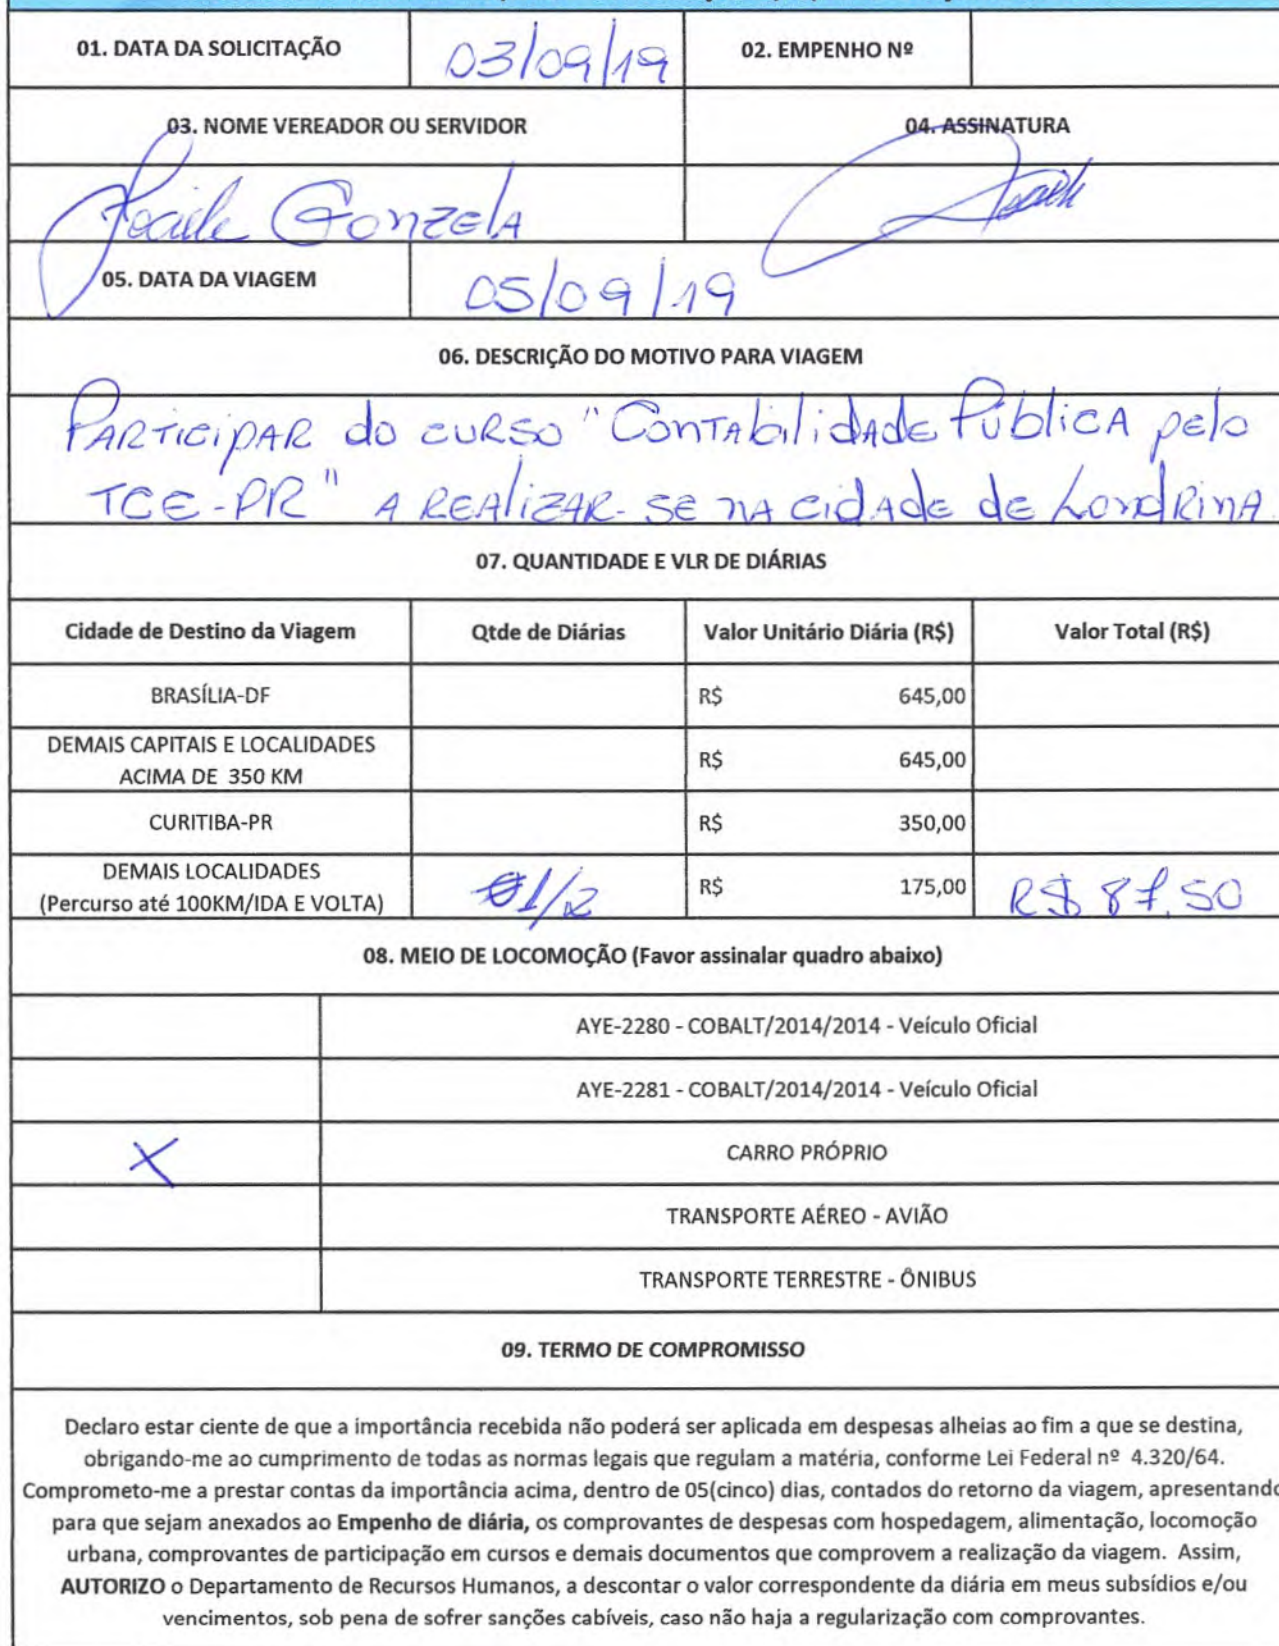 01. DATA DA SOLICITAÇÃO 03/09/19 02. EMPENHO Nº
03. NOME VEREADOR OU SERVIDOR 04. ASSINATURA
Gonzela
05. DATA DA VIAGEM 05/09/19
06. DESCRIÇÃO DO MOTIVO PARA VIAGEM
PARTICIPAR do CURSO "CONTAbilidAdE Pública pElo
TCE-PR" A REAlizAR-SE NA cidAdE dE LondRiNA.
07. QUANTIDADE E VLR DE DIÁRIAS
Cidade de Destino da Viagem Qtde de Diárias Valor Unitário Diária (R$) Valor Total (R$)
BRASÍLIA-DF R$ 645,00
DEMAIS CAPITAIS E LOCALIDADES
ACIMA DE 350 KM R$ 645,00
CURITIBA-PR R$ 350,00
DEMAIS LOCALIDADES
(Percurso até 100KM/IDA E VOLTA) 1/2 R$ 175,00 R$ 87,50
08. MEIO DE LOCOMOÇÃO (Favor assinalar quadro abaixo)
AYE-2280 - COBALT/2014/2014 - Veículo Oficial
AYE-2281 - COBALT/2014/2014 - Veículo Oficial
X CARRO PRÓPRIO
TRANSPORTE AÉREO - AVIÃO
TRANSPORTE TERRESTRE - ÔNIBUS
09. TERMO DE COMPROMISSO
Declaro estar ciente de que a importância recebida não poderá ser aplicada em despesas alheias ao fim a que se destina,
obrigando-me ao cumprimento de todas as normas legais que regulam a matéria, conforme Lei Federal nº 4.320/64.
Comprometo-me a prestar contas da importância acima, dentro de 05(cinco) dias, contados do retorno da viagem, apresentando
para que sejam anexados ao Empenho de diária, os comprovantes de despesas com hospedagem, alimentação, locomoção
urbana, comprovantes de participação em cursos e demais documentos que comprovem a realização da viagem. Assim,
AUTORIZO o Departamento de Recursos Humanos, a descontar o valor correspondente da diária em meus subsídios e/ou
vencimentos, sob pena de sofrer sanções cabíveis, caso não haja a regularização com comprovantes.